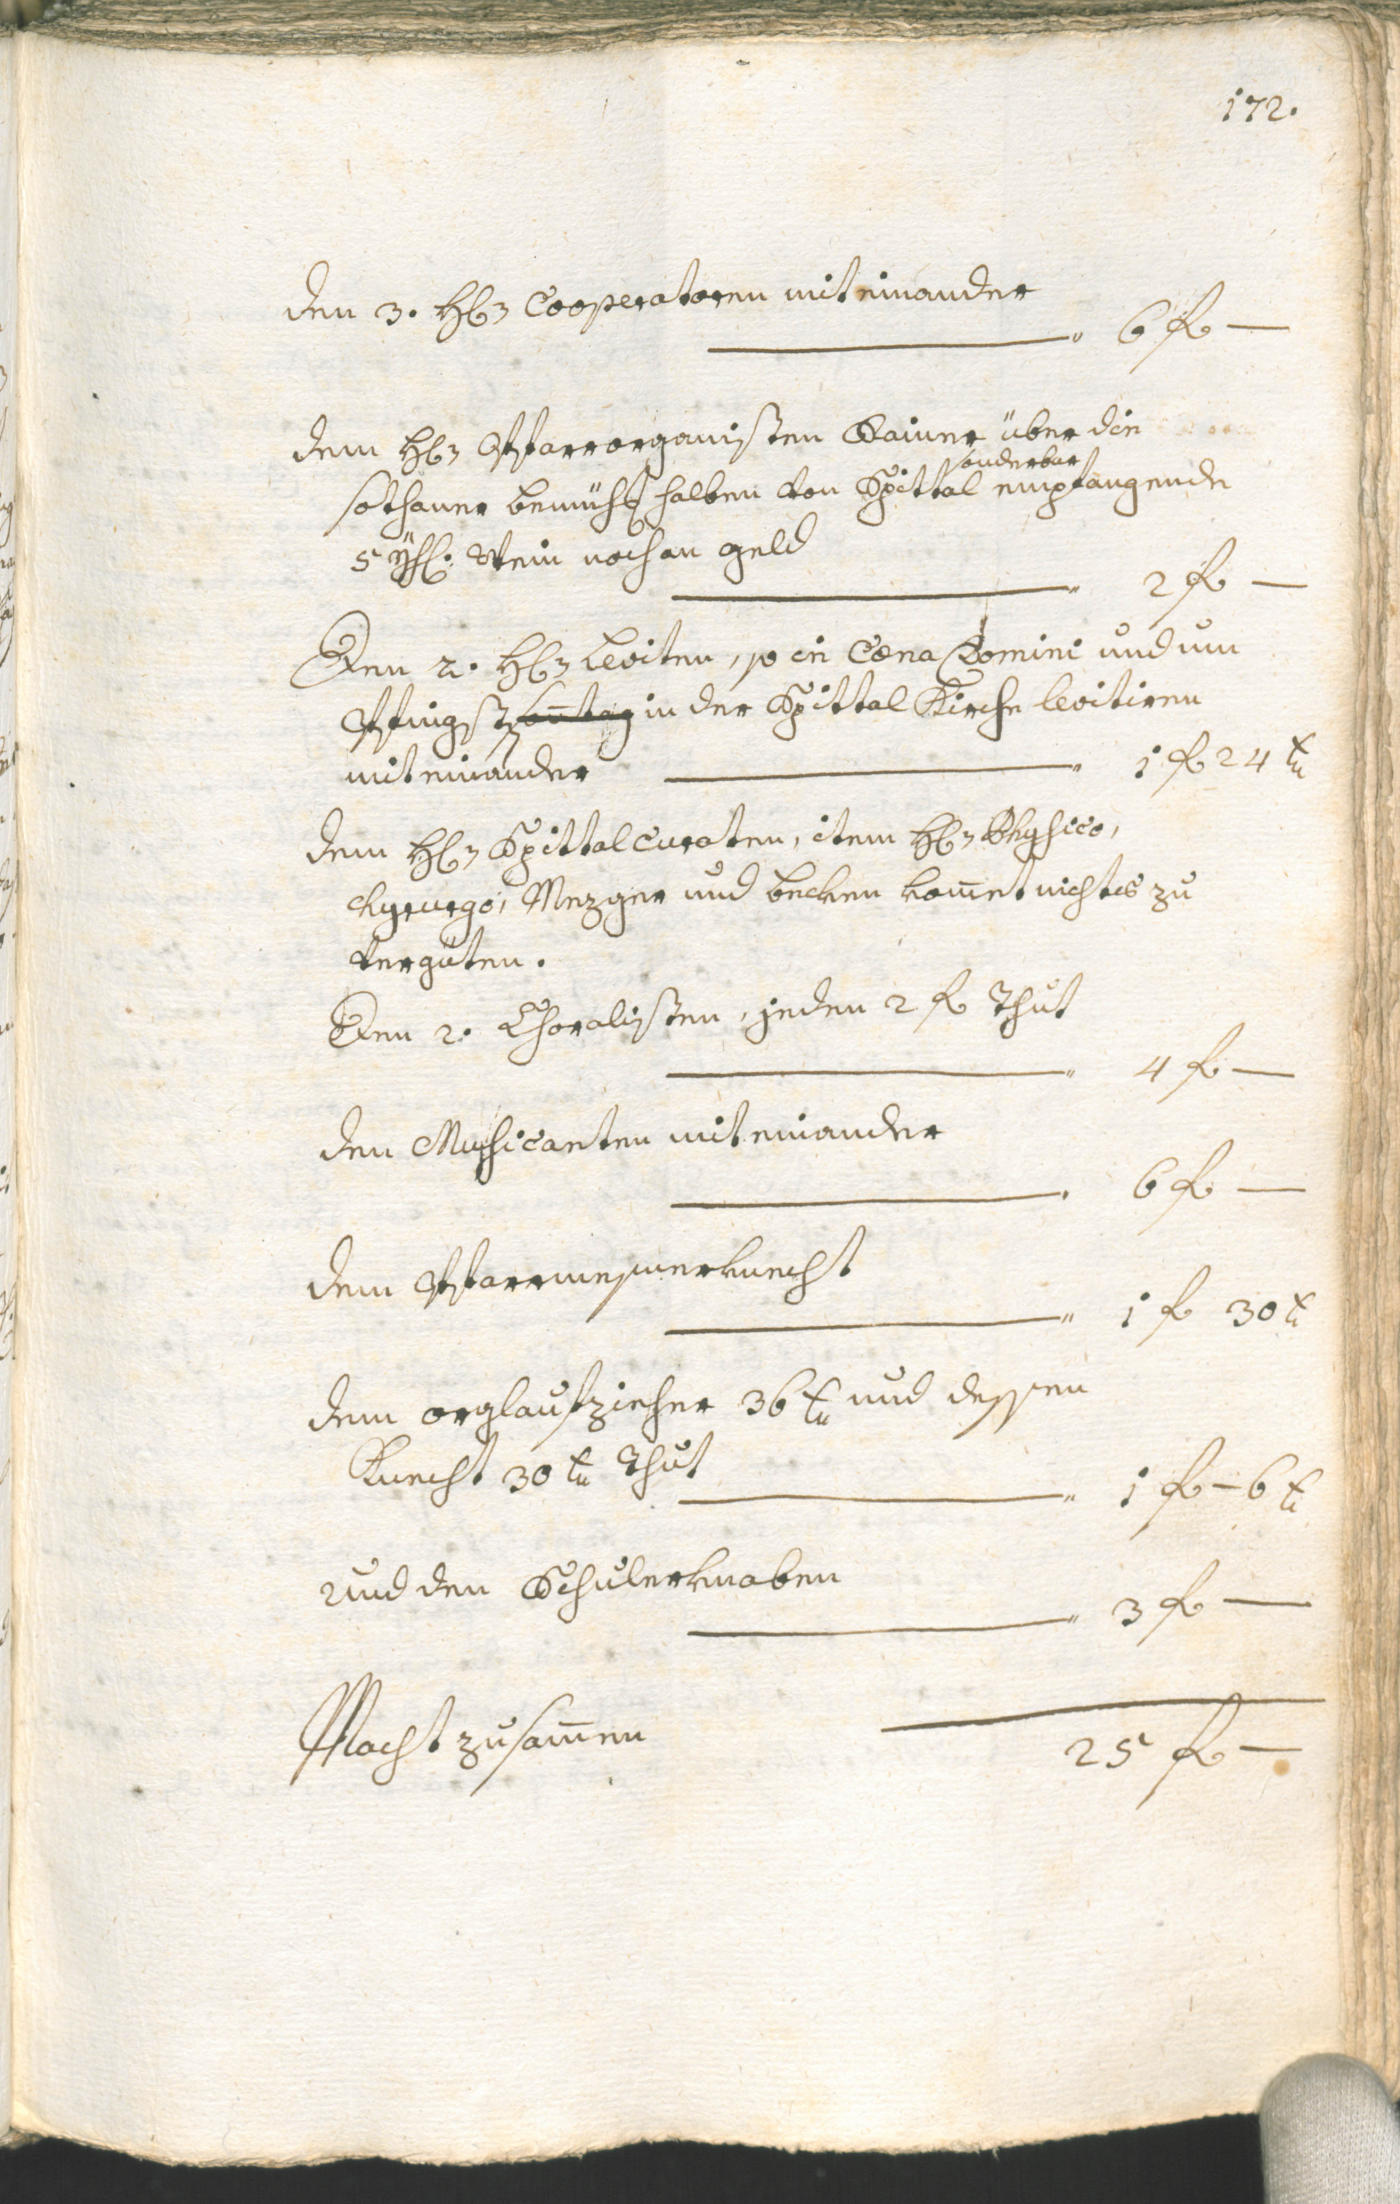 172.
den 3. H: Cooperatoren miteinander
6 fl —
dem H: Pfarrorganisten Rainer über die
sonderbar
sothaner bemüh halben von Spittal empfangende
5 Yhl: Wein noch an geld
2 fl —
Den 2. H: Leviten, so in Cœna Domini und um
Pfingst sontag in der Spittal Kirche levitiren
miteinander 1 fl 24 xr
dem H: Spittalcuraten, item H: Physico,
chyrurgo, Mezger und becken kom̅et nichts zu
vergüten.
Den 2. Choralisten, jeden 2 fl thut
4 fl —
den Musicanten miteinander
6 fl —
dem Pfarrmesnerknecht
1 fl 30 xr
dem orglaufzieher 36 xr und dessen
Knecht 30 xr thut
1 fl – 6 xr
und den Schulerknaben
3 fl —
Macht zusam̅en 25 fl —